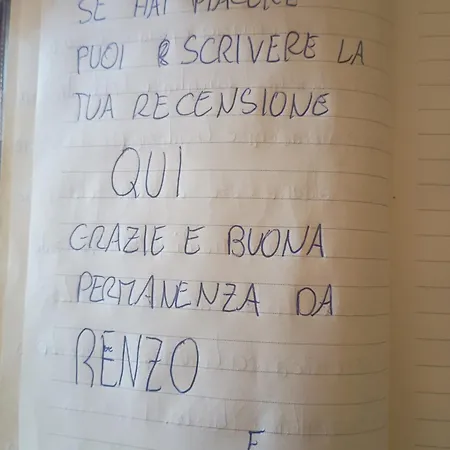 SE HAI PIACERE
PUOI SCRIVERE LA
TUA RECENSIONE
QUI
GRAZIE E BUONA
PERMANENZA DA
RENZO
E